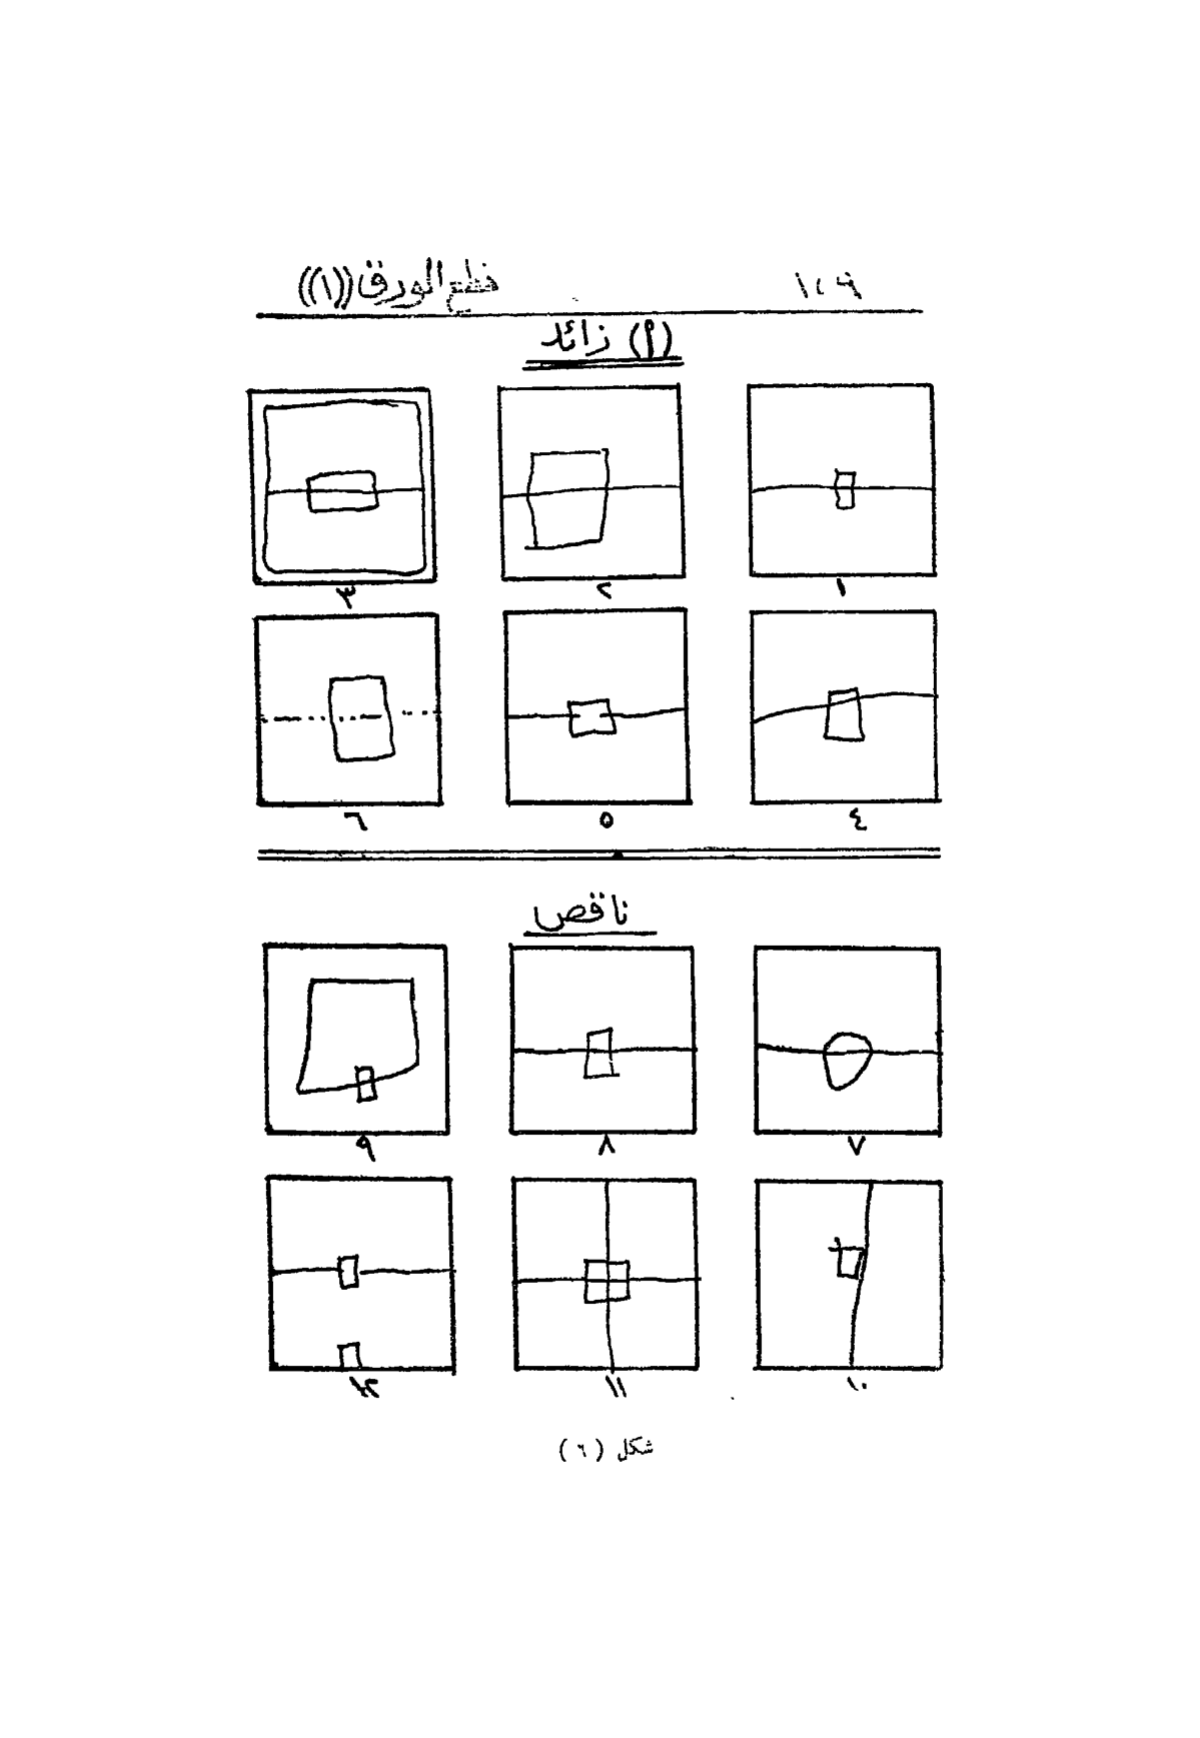 ١،٩ قطع الورق ((١))
(أ) زائد
١ ٢ ٣
٤ ٥ ٦
ناقص
٧ ٨ ٩
١٠ ١١ ١٢
شكل (٦)